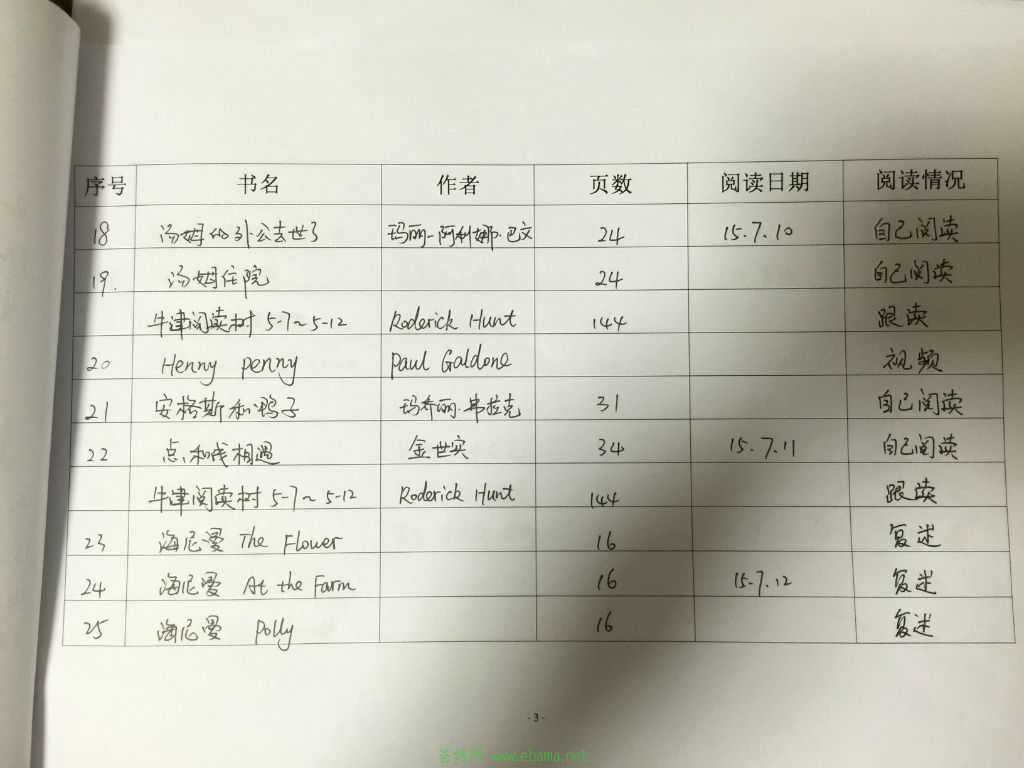 序号 书名 作者 页数 阅读日期 阅读情况
18 汤姆的外公去世了 玛丽-阿利娜·巴文 24 15.7.10 自己阅读
19. 汤姆住院 24 自己阅读
牛津阅读树 5-7~5-12 Roderick Hunt 144 跟读
20 Henny penny Paul Galdone 视频
21 安格斯和鸭子 玛乔丽·弗拉克 31 自己阅读
22 点和线相遇 金世实 34 15.7.11 自己阅读
牛津阅读树 5-7~5-12 Roderick Hunt 144 跟读
23 海尼曼 The Flower 16 复述
24 海尼曼 At the Farm 16 15.7.12 复述
25 海尼曼 Polly 16 复述
- 3 -
爸妈网 www.ebama.net